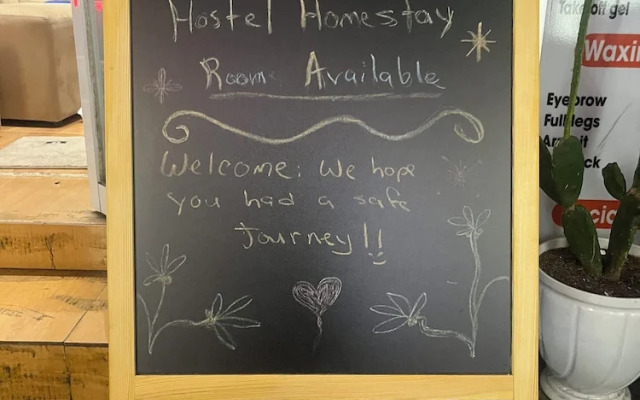 Hostel Homestay
Room Available
Welcome: We hope
you had a safe
Journey!!
Take off gel
Waxin
Eyebrow
Full legs